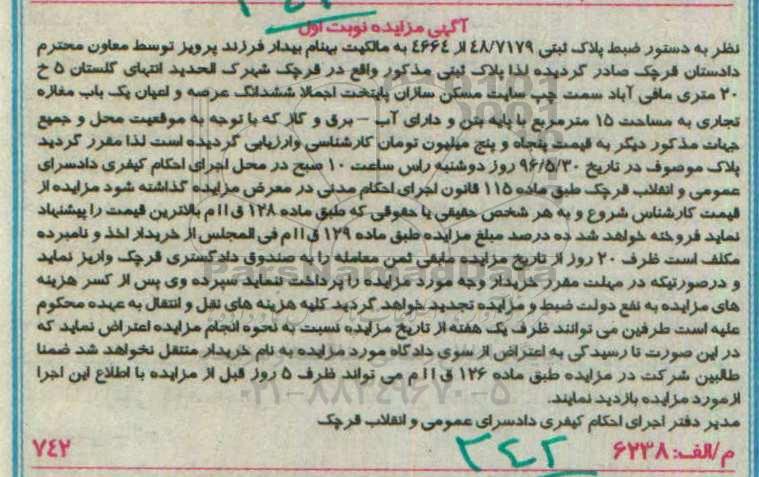 ۳۴۲
آگهی مزایده نوبت اول
نظر به دستور ضبط پلاک ثبتی ۴۸/۷۱۷۹ از ۴۶۶۴ به مالکیت بهنام بیدار فرزند پرویز توسط معاون محترم
دادستان قرچک صادر گردیده لذا پلاک ثبتی مذکور واقع در قرچک شهرک الحدید انتهای گلستان ۵ خ
۲۰ متری مافی آباد سمت چپ سایت مسکن سازان پایتخت اجمالا ششدانگ عرصه و اعیان یک باب مغازه
تجاری به مساحت ۱۵ مترمربع با پایه بتن و دارای آب - برق و گاز که با توجه به موقعیت محل و جمیع
جهات مذکور دیگر به قیمت پنجاه و پنج میلیون تومان کارشناسی وارزیابی گردیده است لذا مقرر گردید
پلاک موصوف در تاریخ ۹۶/۵/۳۰ روز دوشنبه راس ساعت ۱۰ صبح در محل اجرای احکام کیفری دادسرای
عمومی و انقلاب قرچک طبق ماده ۱۱۵ قانون اجرای احکام مدنی در معرض مزایده گذاشته شود مزایده از
قیمت کارشناس شروع و به هر شخص حقیقی یا حقوقی که طبق ماده ۱۲۸ ق ا ا م بالاترین قیمت را پیشنهاد
نماید فروخته خواهد شد ده درصد مبلغ مزایده طبق ماده ۱۲۹ ق ا ا م فی المجلس از خریدار اخذ و نامبرده
مکلف است ظرف ۲۰ روز از تاریخ مزایده مابقی ثمن معامله را به صندوق دادگستری قرچک واریز نماید
و درصورتیکه در مهلت مقرر خریدار وجه مورد مزایده را پرداخت ننماید سپرده وی پس از کسر هزینه
های مزایده به نفع دولت ضبط و مزایده تجدید خواهد گردید کلیه هزینه های نقل و انتقال به عهده محکوم
علیه است طرفین می توانند ظرف یک هفته از تاریخ مزایده نسبت به نحوه انجام مزایده اعتراض نماید که
در این صورت تا رسیدگی به اعتراض از سوی دادگاه مورد مزایده به نام خریدار منتقل نخواهد شد ضمنا
طالبین شرکت در مزایده طبق ماده ۱۲۶ ق ا ا م می تواند ظرف ۵ روز قبل از مزایده با اطلاع این اجرا
از مورد مزایده بازدید نمایند.
مدیر دفتر اجرای احکام کیفری دادسرای عمومی و انقلاب قرچک
م/الف: ۶۲۳۸
۳۴۲
۷۴۲
ParsNamadData
۰۲۱-۸۸۳۴۹۶۷۰-۵